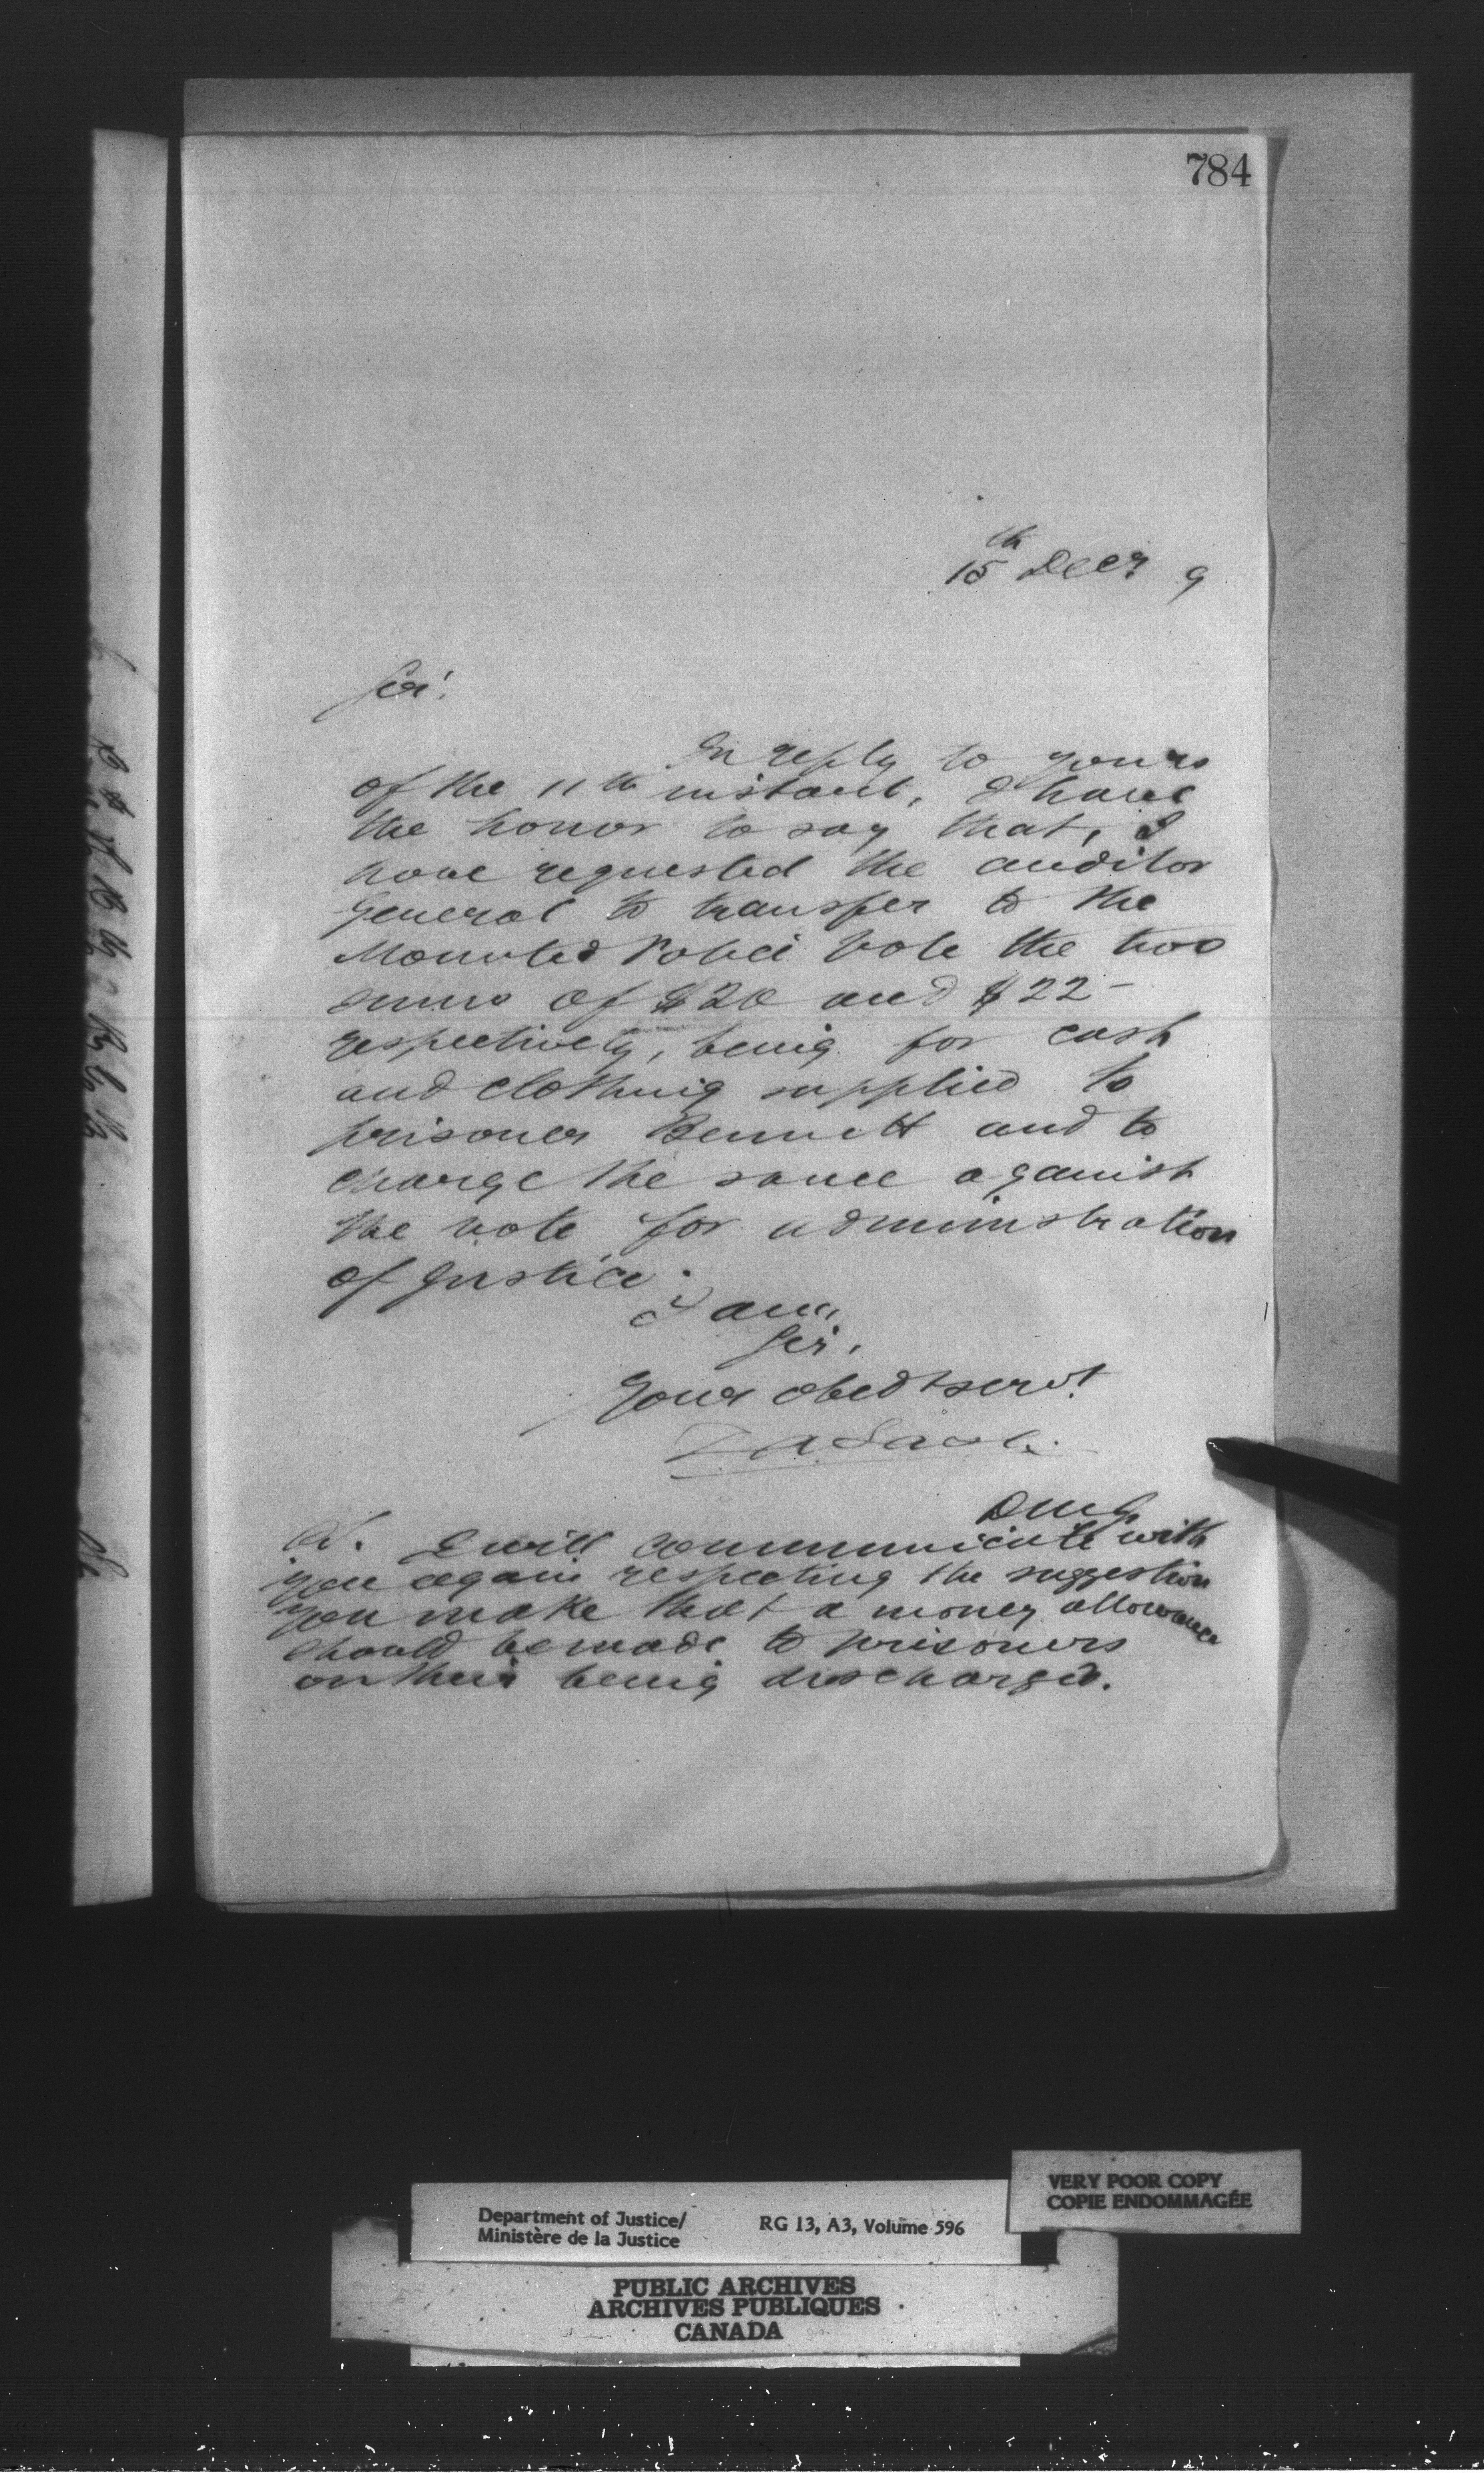 784
15th Decr 9
Sir!
In reply to yours
of the 11th instant, I have
the honor to say that, I
have requested the auditor
General to transfer to the
Mounted Police vote the two
sums of $20 and $22-
respectively, being for cash
and clothing supplied to
prisoner Bennett and to
charge the same against
the vote for administration
of Justice.
I am,
Sir,
Your obedt servt
DMJ
I will communicate with
you again respecting the suggestion
you make that a money allowance
should be made to prisoners
on their being discharged.
VERY POOR COPY
COPIE ENDOMMAGÉE
Department of Justice/
Ministère de la Justice
RG 13, A3, Volume 596
PUBLIC ARCHIVES
ARCHIVES PUBLIQUES
CANADA